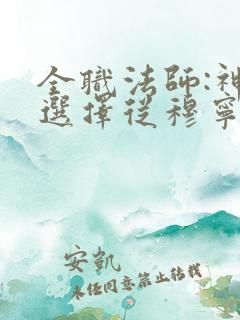 全職法師:神
選擇從穆寧
安凱
未任同意禁止转载